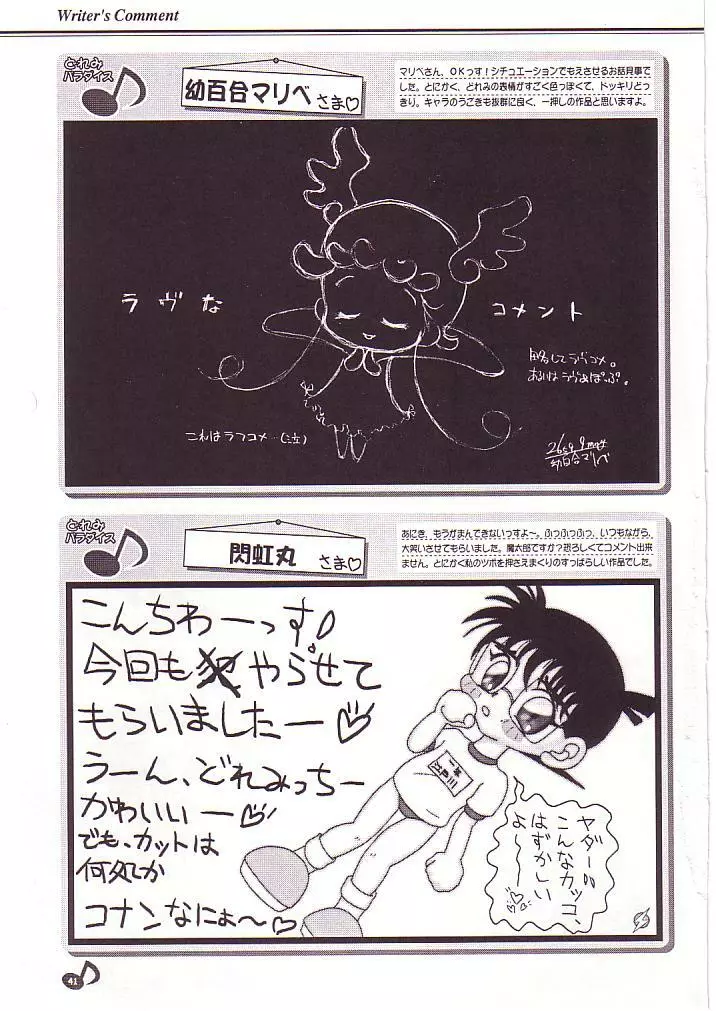 Writer's Comment
どれみ
パラダイス
幼百合マリベ さま♡
マリベさん、OKっす!シチュエーションでもえさせるお話見事で
した。とにかく、どれみの表情がすごく色っぽくて、ドッキリどっ
きり。キャラのうごきも抜群に良く、一押しの作品と思いますよ。
ラヴな
コメント
略してラヴコメ。
あるいはラヴあぽっぷ。
これはラフコメ…(泣)
幼百合マリベ
どれみ
パラダイス
閃虹丸 さま♡
あにき、もうがまんできないっすよ〜。ふっふっふっ、いつもながら、
大笑いさせてもらいました。魔太郎ですか?恐ろしくてコメント出来
ません。とにかく私のツボを押さえまくりのすっばらしい作品でした。
こんちわーっす
今回も やらせて
もらいましたー♡
うーん、どれみっちー
かわいいー♡
でも、カットは
何処か
コナンなにぉ〜♡
一年
江戸川
ヤダー!!
こんなカッコ、
はずかしい
よ〜〜
41